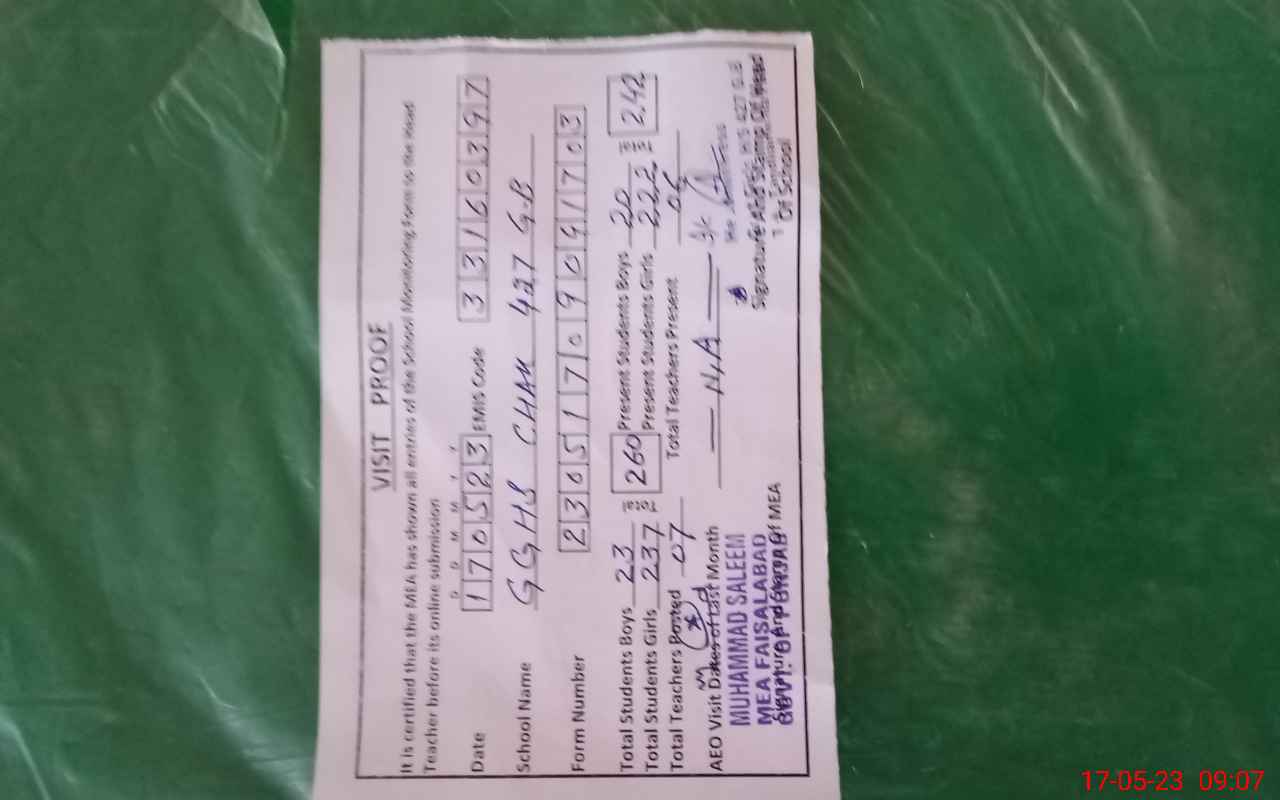 VISIT PROOF
It is certified that the MEA has shown all entries of the School Monitoring Form to the Head
Teacher before its online submission
D D M M Y Y
Date 170523 EMIS Code 33160397
School Name GGHS CHAK 427 G.B
Form Number 23051709091703
Total Students Boys 23 Total 260 Present Students Boys 20 Total 242
Total Students Girls 237 Present Students Girls 222
Total Teachers Posted 07 Total Teachers Present 06
AEO Visit Dates of Last Month — N.A —
MUHAMMAD SALEEM
MEA FAISALABAD
GOVT. OF PUNJAB
Signature And Stamp Of MEA
Signature And Stamp Of Head
Of School
17-05-23 09:07